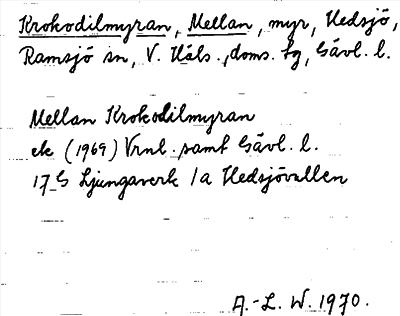 Krokodilmyran, Mellan, myr, Hedsjö,
Ramsjö sn, V. Häls., doms. fg, Gävl. l.
Mellan Krokodilmyran
ek (1969) Vrnl. samt Gävl. l.
17 G Ljungaverk 1a Hedsjövallen
A.-L. W. 1970.